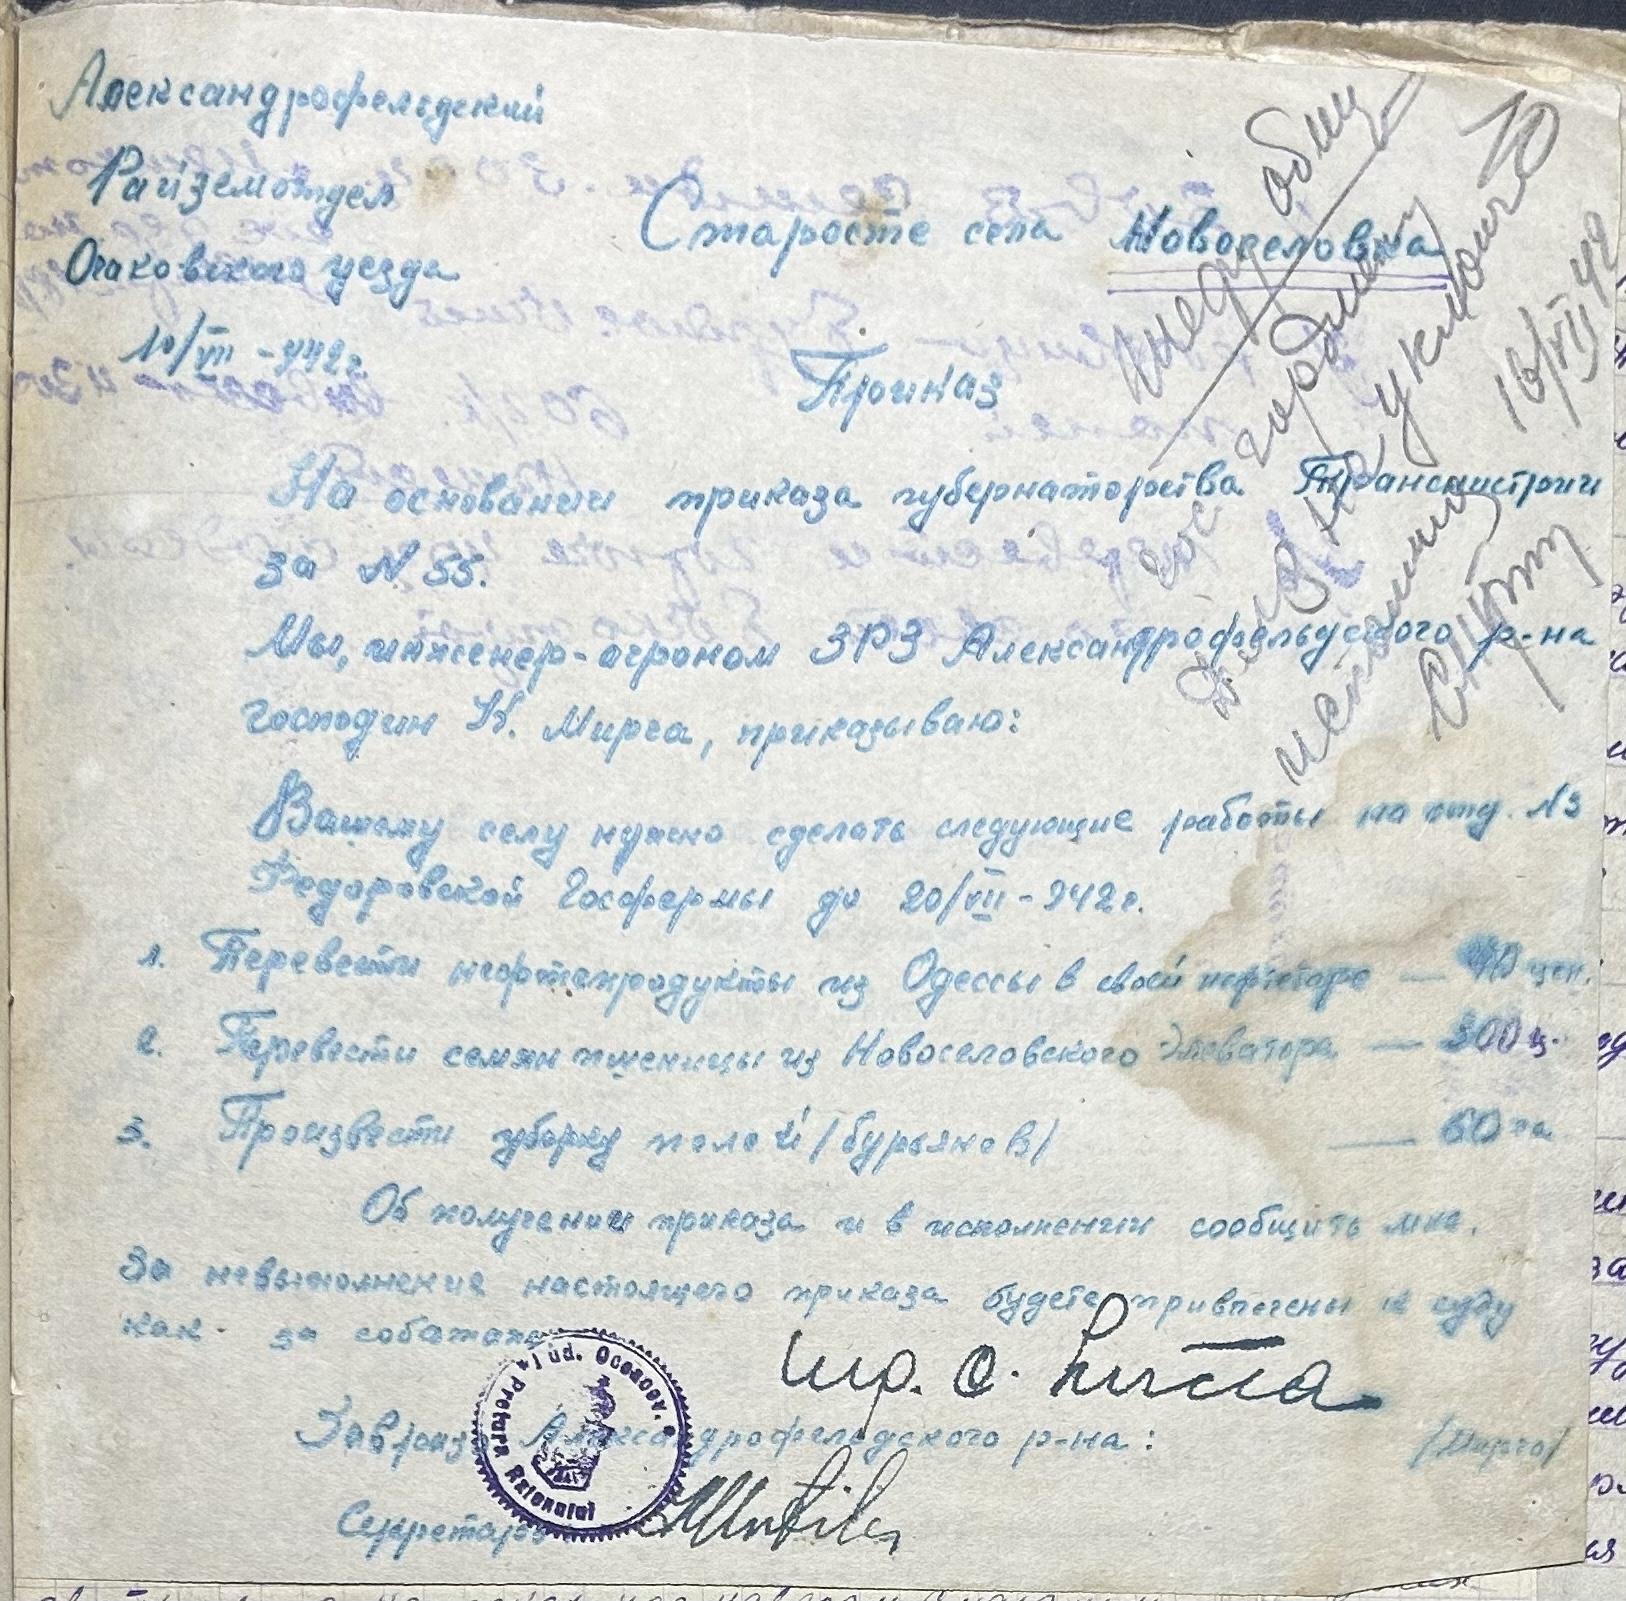 Александрофельдский
Райземотдел
Очаковского уезда
10/VII-942г.
Старосте села Новоселовка
Приказ
На основании приказа губернаторства Транснистрии
за N 55.
Мы, инженер-агроном ЗРЗ Александрофельдского р-на
господин К. Мирча, приказываю:
Вашему селу нужно сделать следующие работы на отд. N3
Федоровской Госфермы до 20/VII-942г.
1. Перевести нефтепродукты из Одессы в своей нефтетаре — 10 цен.
2. Перевести семян пшеницы из Новоселовского Элеватора — 300 ц.
3. Произвести уборку полей /бурьянов/ — 60 га
Об получении приказа и в исполнении сообщить мне.
За невыполнение настоящего приказа будете привлечены к суду
как за собатаж
Завраиз. Александрофельдского р-на: /Мирча/
Секретарь
Pretura Raionului
Jud. Oceacov.
10
общ
к исполнению
16/VII 42